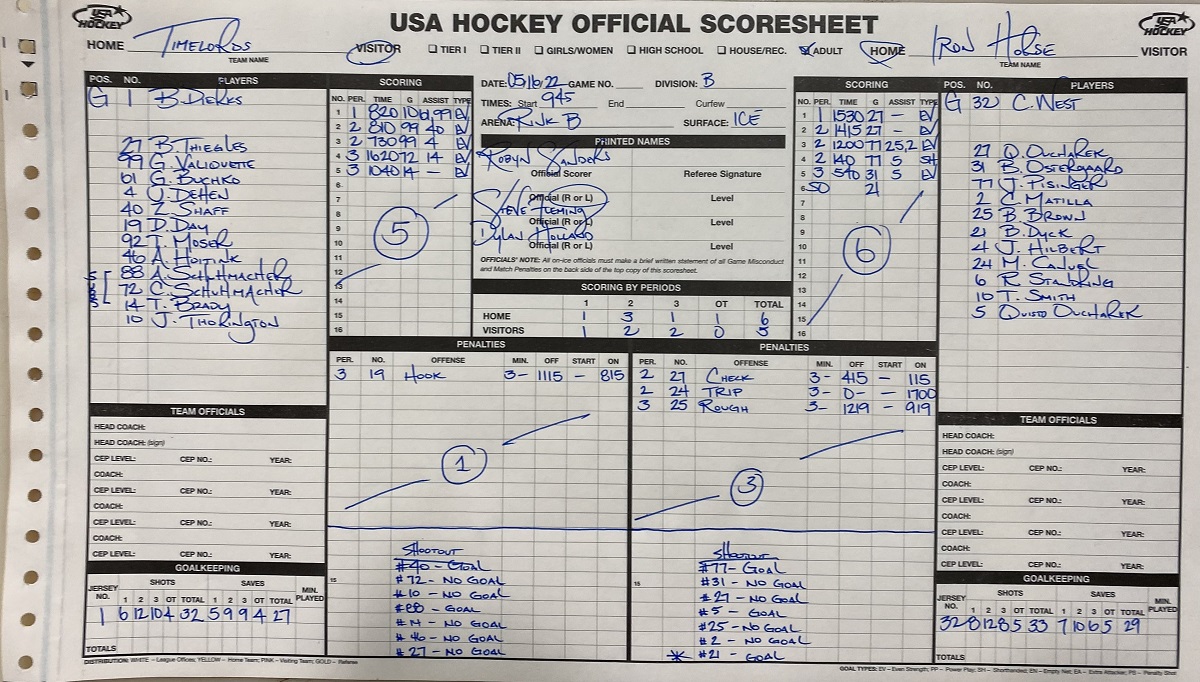 USA HOCKEY OFFICIAL SCORESHEET
USA HOCKEY
USA HOCKEY
HOME TIMELORDS VISITOR
TEAM NAME
☐ TIER I ☐ TIER II ☐ GIRLS/WOMEN ☐ HIGH SCHOOL ☐ HOUSE/REC. ☒ ADULT
HOME IRON HORSE VISITOR
TEAM NAME
POS. NO. PLAYERS
G 1 B. DERKS
27 B. THIEGLES
99 G. VALIQUETTE
61 G. BUCHKO
4 J. DEHEN
40 Z. SHAFF
19 D. DAY
92 T. MOSER
46 A. HOITINK
88 A. SCHUHMACHER
72 C. SCHUHMACHER
14 T. BRADY
10 J. THORINGTON
SUBS
SCORING
NO. PER. TIME G ASSIST TYPE
1 1 820 10 61,99 EV
2 2 810 99 40 EV
3 2 730 99 4 EV
4 3 1620 72 14 EV
5 3 1040 14 - EV
6
7
8
9
10
11
12
13
14
15
16
5
DATE: 05/16/22 GAME NO. DIVISION: B
TIMES: Start 945 End Curfew
ARENA: RINK B SURFACE: ICE
PRINTED NAMES
ROBYN SANDERS
Official Scorer Referee Signature
STEVE FLEMING
Official (R or L) Level
Official (R or L) Level
DYLAN HOLLAND
Official (R or L) Level
OFFICIALS' NOTE: All on-ice officials must make a brief written statement of all Game Misconduct
and Match Penalties on the back side of the top copy of this scoresheet.
SCORING BY PERIODS
1 2 3 OT TOTAL
HOME 1 3 1 1 6
VISITORS 1 2 2 0 5
SCORING
NO. PER. TIME G ASSIST TYPE
1 1 1530 27 - EV
2 2 1415 27 - EV
3 2 1200 77 25,2 EV
4 2 140 77 5 SH
5 3 540 31 5 EV
6 SO 21
7
8
9
10
11
12
13
14
15
16
6
POS. NO. PLAYERS
G 32 C. WEST
27 Q. OUCHAREK
31 B. OSTERGAARD
77 J. PISINGER
2 C. MATILLA
25 B. BROWN
21 B. DYCK
4 J. HILBERT
24 M. CANUEL
6 R. STANDRING
10 T. SMITH
5 QUISTO OUCHAREK
PENALTIES
PER. NO. OFFENSE MIN. OFF START ON
3 19 HOOK 3- 1115 - 815
1
PENALTIES
PER. NO. OFFENSE MIN. OFF START ON
2 27 CHECK 3- 415 - 115
2 24 TRIP 3- 0- - 1700
3 25 ROUGH 3- 1219 - 919
3
TEAM OFFICIALS
HEAD COACH:
HEAD COACH: (sign)
CEP LEVEL: CEP NO.: YEAR:
COACH:
CEP LEVEL: CEP NO.: YEAR:
COACH:
CEP LEVEL: CEP NO.: YEAR:
COACH:
CEP LEVEL: CEP NO.: YEAR:
GOALKEEPING
JERSEY NO. SHOTS SAVES MIN. PLAYED
1 2 3 OT TOTAL 1 2 3 OT TOTAL
1 6 12 10 4 32 5 9 9 4 27
TOTALS
15
SHOOTOUT
#40 - GOAL
#72 - NO GOAL
#10 - NO GOAL
#88 - GOAL
#14 - NO GOAL
#46 - NO GOAL
#27 - NO GOAL
15
SHOOTOUT
#77 - GOAL
#31 - NO GOAL
#27 - NO GOAL
#5 - GOAL
#25 - NO GOAL
#2 - NO GOAL
* #21 - GOAL
TEAM OFFICIALS
HEAD COACH:
HEAD COACH: (sign)
CEP LEVEL: CEP NO.: YEAR:
COACH:
CEP LEVEL: CEP NO.: YEAR:
COACH:
CEP LEVEL: CEP NO.: YEAR:
COACH:
CEP LEVEL: CEP NO.: YEAR:
GOALKEEPING
JERSEY NO. SHOTS SAVES MIN. PLAYED
1 2 3 OT TOTAL 1 2 3 OT TOTAL
32 8 12 8 5 33 7 10 6 5 29
TOTALS
DISTRIBUTION: WHITE – League Offices; YELLOW – Home Team; PINK – Visiting Team; GOLD – Referee
GOAL TYPES: EV – Even Strength; PP – Power Play; SH – Shorthanded; EN – Empty Net; EA – Extra Attacker; PS – Penalty Shot